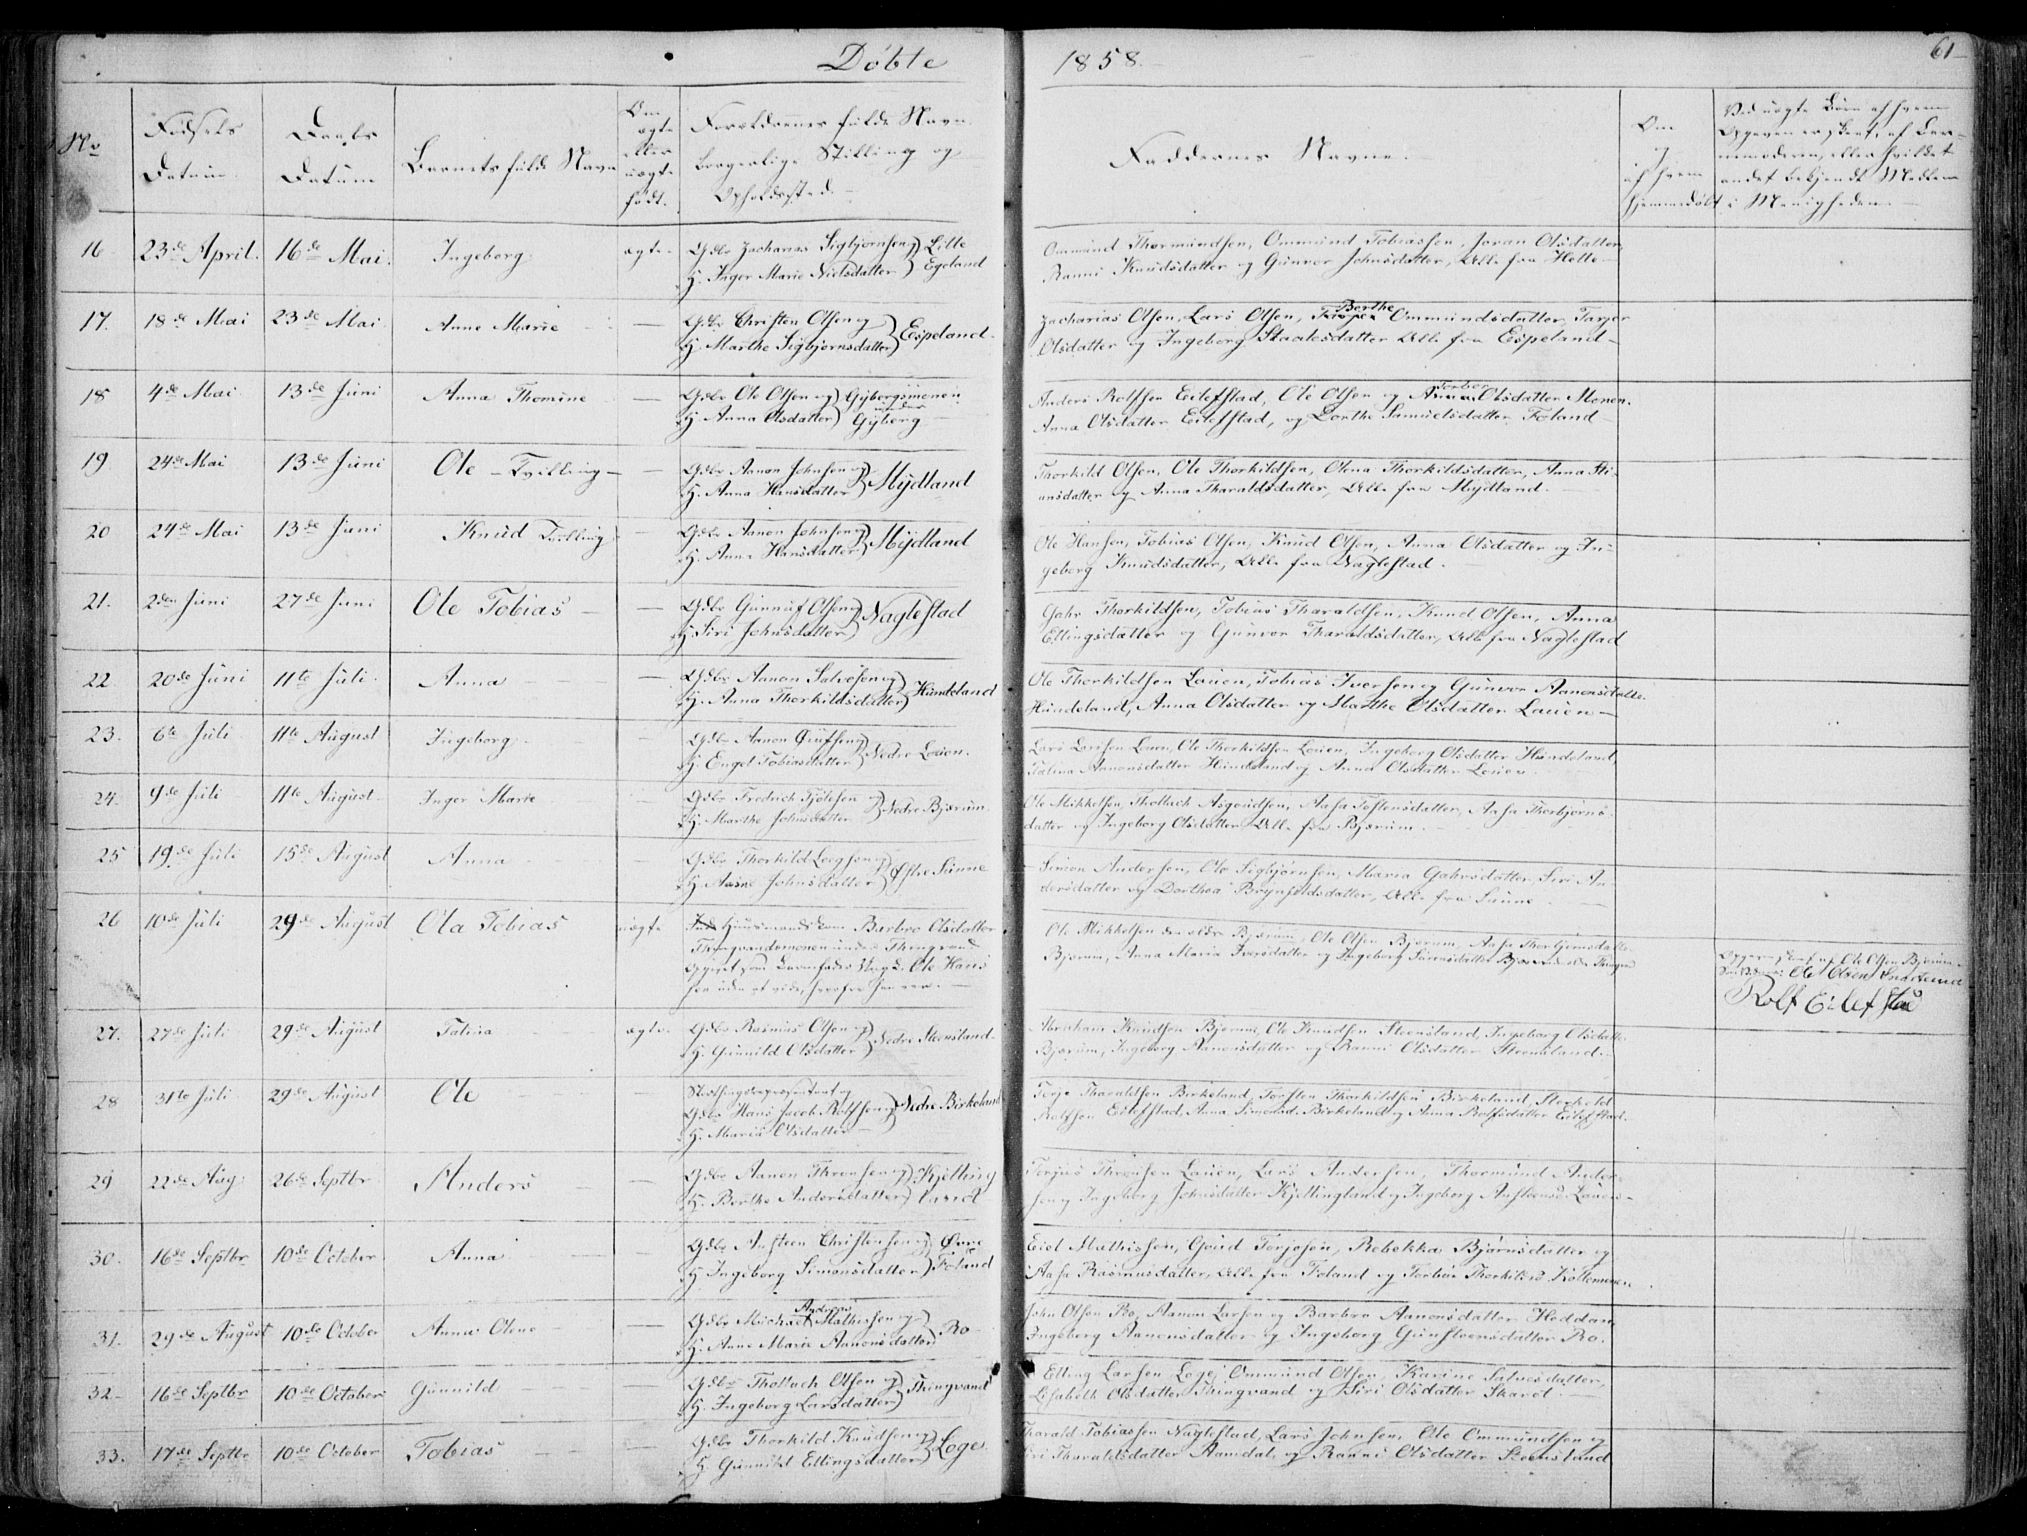 Døbte 1858. 61
No
Fødsels Datum.
Daabs Datum
Barnets fulde Navn
Om ægte eller uægte født.
Forældrenes fulde Navn, borgerlige Stilling og Opholdssted.
Faddernes Navne.
Om og af hvem hjemmedøbt
Ved uægte Børn af hvem Opgaven er skeet, af Barnemoderen, eller hvilket andet bekjendt Medlem i Menigheden.
16. 23de April. 16de Mai. Ingeborg. ægte Gdbr Zacharias Sigbjørnsen og Lille
H. Inger Marie Nielsdatter Egeland
Ommund Thormundsen, Ommund Tobiassen, Joran Olsdatter,
Ranni Knudsdatter og Gunvor Johnsdatter, Alle fra Hette
17. 18de Mai 23de Mai. Anne Marie — Gdbr Christen Olsen og
H. Marthe Sigbjørnsdatter Espeland.
Berthe
Zacharias Olsen, Lars Olsen, Ommundsdatter, Tarjer
Olsdatter og Ingeborg Staalesdatter Alle fra Espeland
18 4de Mai 13de Juni Anna Thomine — Gdbr Ole Olsen og Gybergsmonen
H. Anna Olsdatter under Gyberg
Torbor
Anders Rolfsen Eilefstad, Ole Olsen og Olsdatter Monen.
Anna Olsdatter Eilefstad, og Dorthe Samuelsdatter Foland
19 24de Mai 13de Juni Ole – Tvilling – — Gdbr Aanon Johnsen og
H. Anna Hansdatter Mydland
Thorkild Olsen, Ole Thorkildsen, Olena Thorkildsdatter, Anna Sti-
ansdatter og Anna Tharaldsdatter, Alle fra Mydland.
20 24de Mai 13de Juni Knud Tvilling — Gdbr Aanon Johnsen og
H. Anna Hansdatter Mydland
Ole Hansen, Tobias Olsen, Knud Olsen, Anna Olsdatter og In-
geborg Knudsdatter, Alle fra Naglestad.
21. 2den Juni 27de Juni Ole Tobias — Gdbr Gunnuf Olsen og
H. Siri Johnsdatter Naglestad
Gahr Thorkildsen, Tobias Tharaldsen, Knud Olsen, Anna
Ellingsdatter og Gunvor Tharaldsdatter, Alle fra Naglestad
22 20de Juni 11te Juli Anna — Gdbr Aanon Salvesen og
H. Anna Thorkildsdatter Hundeland
Ole Thorkildsen Lauen, Tobias Iversen og Gunvor Aanonsdatter
Hundeland, Anna Olsdatter og Marthe Olsdatter Lauen
23. 6te Juli 11te August Ingeborg. Gdbr Aanon
H. Engel Tobiasdatter Nedre Lauen.
Lars Larsen Lauen, Ole Thorkildsen Lauen, Ingeborg Olsdatter Hundeland,
Tobina Aanonsdatter Hundeland og Anna Olsdatter Lauen
24. 9de Juli 11te August Inger Marie Gdbr Fredrich Tjølesen og
H. Marthe Johnsdatter Nedre Bjærum.
Ole Mikkelsen, Thollach Asgoudsen, Aasa Tostensdatter, Aasa Thorbjørns-
datter og Ingeborg Olsdatter Alle fra Bjærum.
25 19de Juli 15de August Anna Gdbr Thorkild og
H. Aasne Johnsdatter Østre Sunne
Simon Andersen, Ole Sigbjørnsen, Maria Gahrsdatter, Siri An-
dersdatter og Dorthea Brynjeldsdatter, Alle fra Sunne
26 10de Juli 29de August Ole Tobias uægte Huusmandskone Barbro Olsdatter
Thingvandsmonen under Thingvand
Opgivet som Barnefader Ungk. Ole Hans-
sen uden at vide, hvorfra han var.
Ole Mikkelsen den ældre Bjærum, Ole Olsen Bjærum, Aasa Thorbjørnsdatter
Bjærum, Anna Maria Iversdatter og Ingeborg
Opgaven skeet af Ole Olsen Bjærum.
Ole Olsen
Rolf Eilefstad
27. 27de Juli 29de August Talina ægte Gdbr Rasmus Olsen og
H. Gunnild Olsdatter Nedre Steensland.
Abraham Knudsen Bjærum, Ole Knudsen Steensland, Ingeborg Olsdatter
Bjærum, Ingeborg Aanonsdatter og Ranni Olsdatter Steensland.
28 31te Juli 29de August Ole Storthingsrepræsentant og
Gdbr Hans Jacob Rolfsen og
H. Maria Olsdatter Nedre Birkeland
Terje Tharaldsen Birkeland, Torsten Thorkildsen Birkeland, Storkold
Rolfsen Eilefstad, Anna Simonsd. Birkeland og Anna Rolfsdatter Eilefstad.
29 22de Aug. 26de Septbr Anders — Gdbr Aanen Thronsen og Kjelling
H. Berthe Andersdatter land
Terjus Thronsen Lauen, Lars Andersen, Thormund Ander-
sen og Ingeborg Johnsdatter Kjellingland og Ingeborg Austensd. Lauen
30. 16de Septbr 10de October Anna Gdbr Austeen Christensen og Øvre
H. Ingeborg Simonsdatter Foland
Eiel Mathissen, Goud Torjesen, Rebekka Bjørnsdatter og
Aasa Rasmusdatter, Alle fra Foland og Torbor Thorkilds.
31. 29de August 10de October Anna Olene — Gdbr Michael Andreas Mathissen og
H. Anne Marie Aanonsdatter Ro
John Olsen Ro, Aanon Larsen og Barbro Aanonsdatter Heddan,
Ingeborg Aanonsdatter og Ingeborg Gunsteensdatter Ro.
32. 16de Septbr 10de October Gunnild Gdbr Thollach Olsen og
H. Ingeborg Larsdatter Thingvand
Elling Larsen Loge, Ommund Olsen, Karine Salvesdatter,
Lisabeth Olsdatter Thingvand og Siri Olsdatter Skaret.
33. 17de Septbr 10de October Tobias Gdbr Thorkild Knudsen og
H. Gunnild Ellingsdatter Loge
Tharald Tobiassen Naglestad, Lars Johnsen, Ole Ommundsen og
Siri Tharaldsdatter Aamdal, og Ranni Olsdatter Steensland